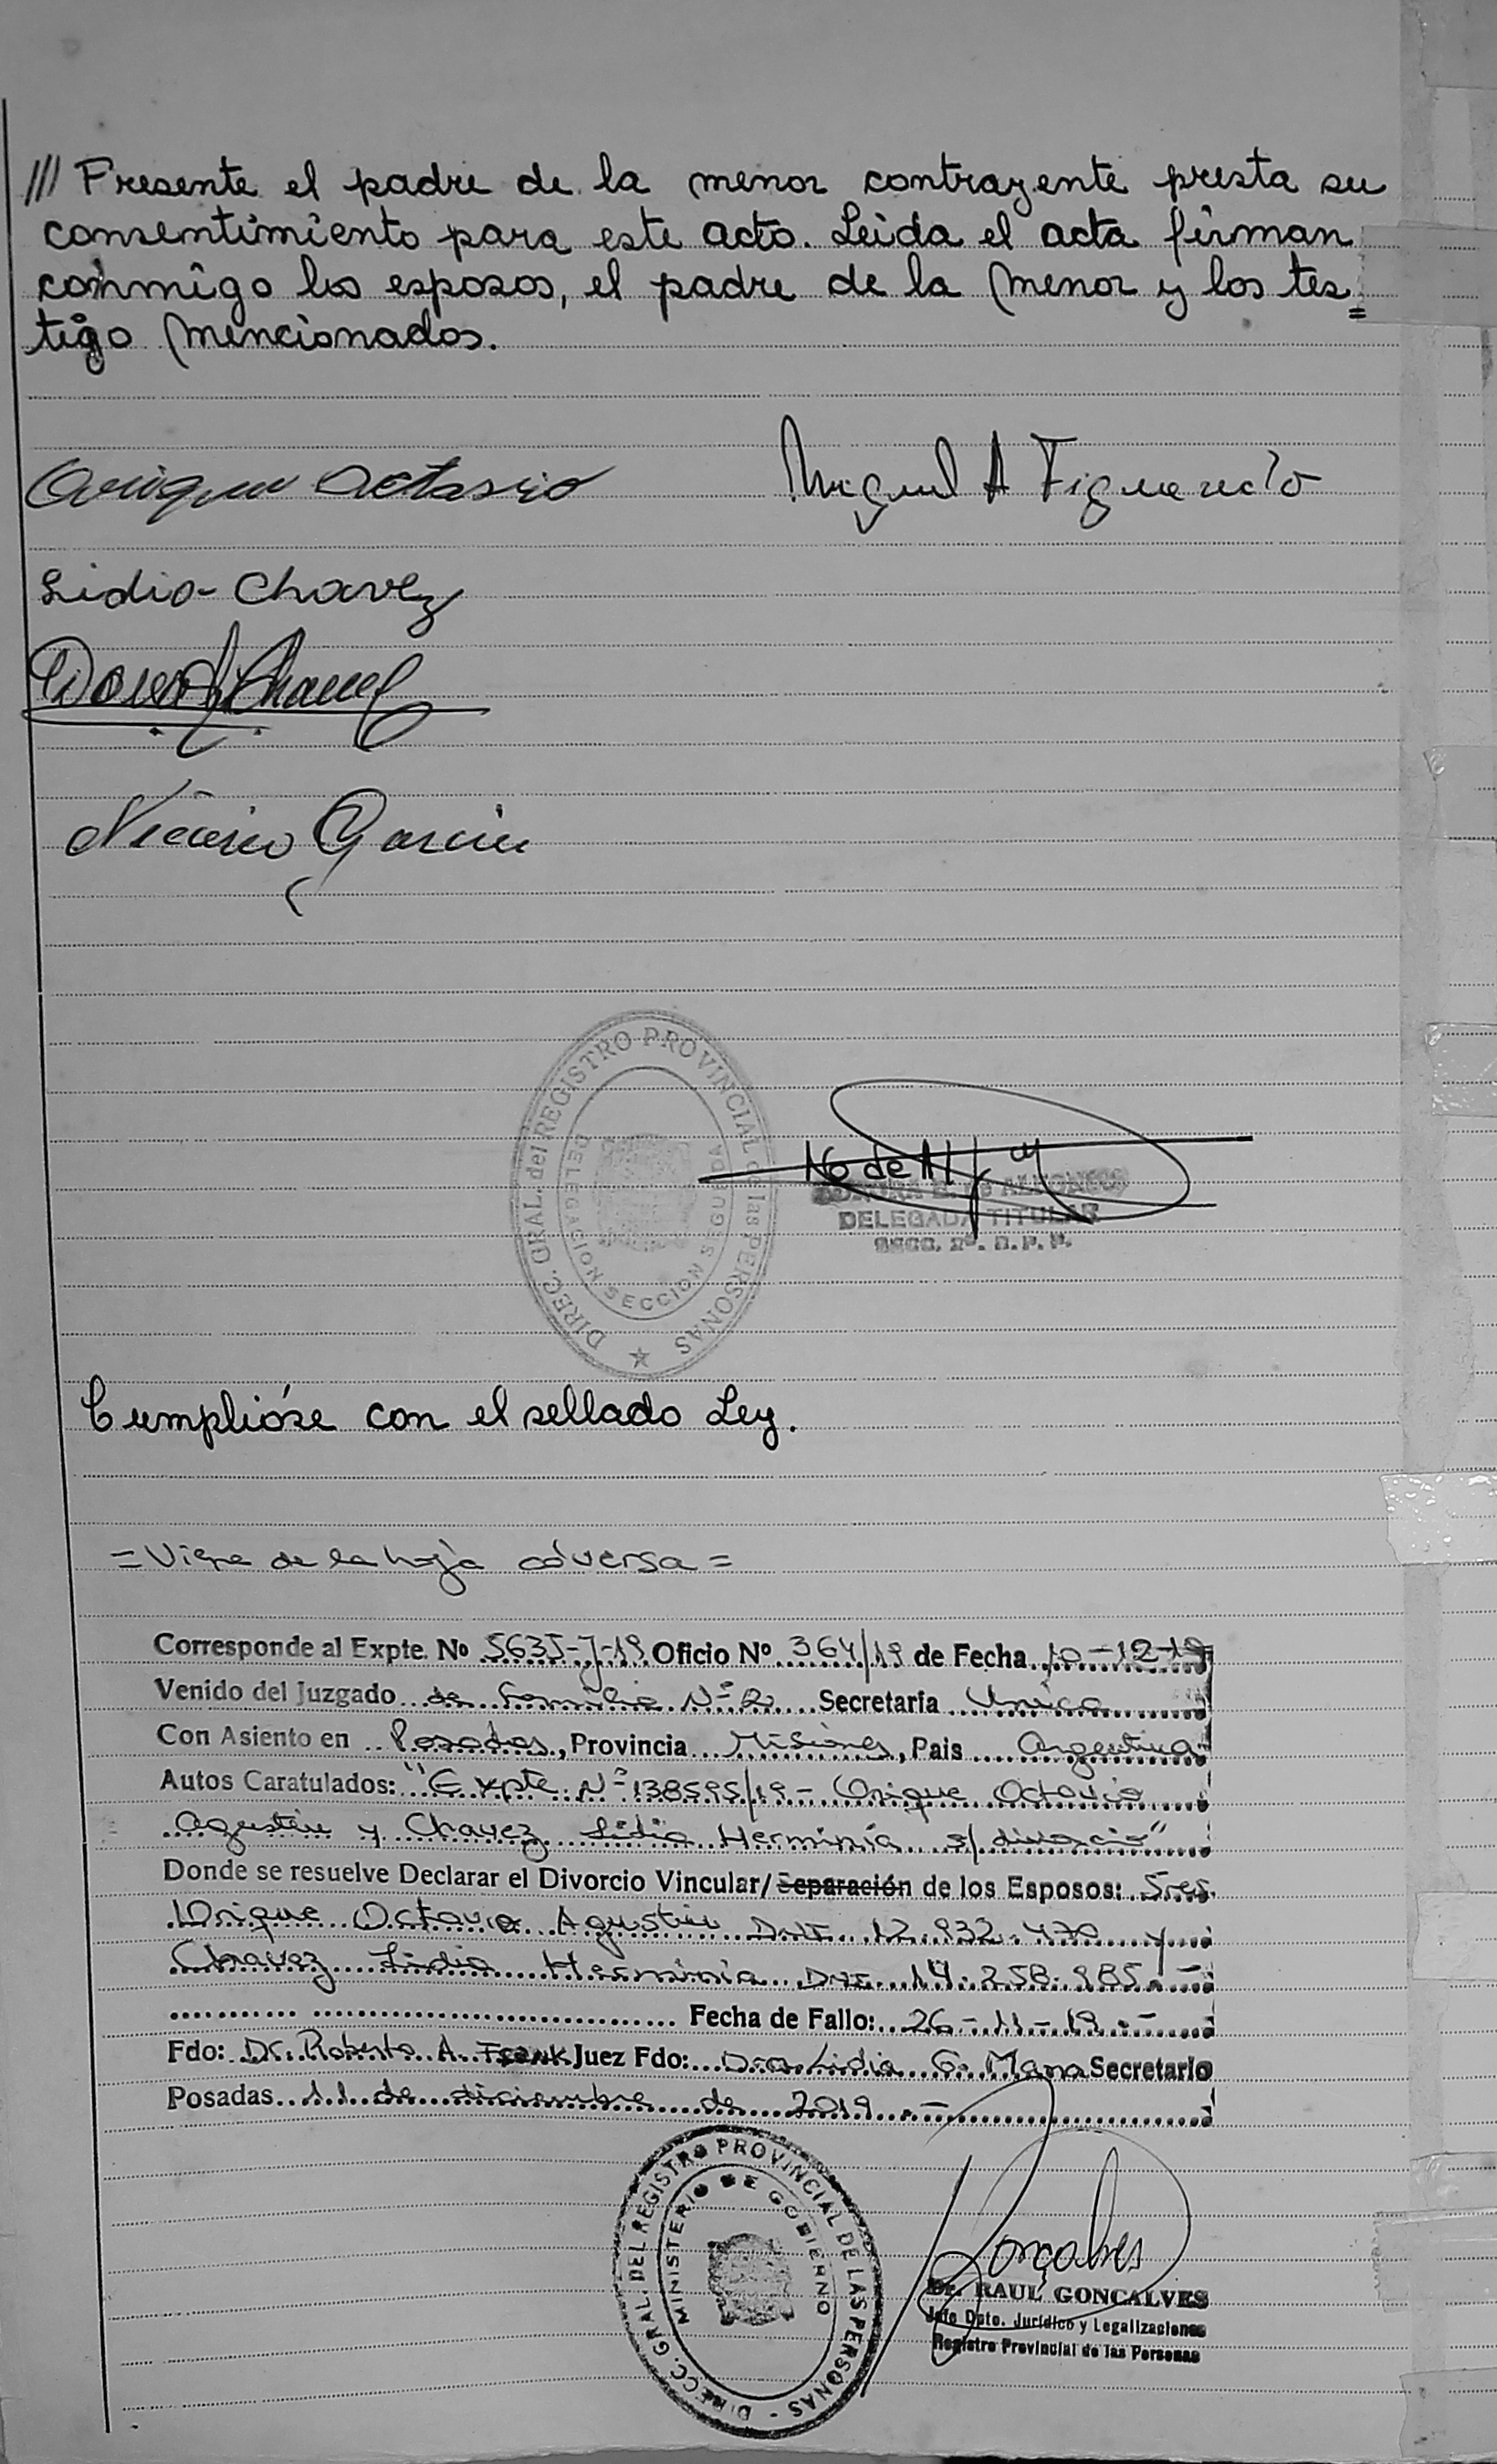 /// Presente el padre de la menor contrayente presta su
consentimiento para este acto. Leida el acta firman
conmigo los esposos, el padre de la menor y los tes=
tigo mencionados.
Orique Octavio
Miguel A Figueredo
Lidia Chavez
Chavez
Nicasio Garcia
DIREC. GRAL. del REGISTRO PROVINCIAL de las PERSONAS
DELEGACION SECCION SEGUNDA
No de Al
DELEGADA TITULAR
SECC. 2ª. R. P. P.
Cumplióse con el sellado Ley.
= Viene de la hoja adversa =
Corresponde al Expte. No 5635-J-19 Oficio Nº 364/19 de Fecha 10-12-19
Venido del Juzgado de Familia Nº 2 Secretaría Unica
Con Asiento en Posadas, Provincia Misiones, Pais Argentina
Autos Caratulados: "Expte Nº 138595/19 - Orique Octavio
Agustin y Chavez Lidia Herminia s/ divorcio"
Donde se resuelve Declarar el Divorcio Vincular/Separación de los Esposos: Sres.
Orique Octavio Agustin DNI 12.932.470 y
Chavez Lidia Herminia DNI 14.258.985.-
Fecha de Fallo: 26-11-19.-
Fdo: Dr. Roberto A. Frank Juez Fdo: Dra. Lidia G. Mana Secretario
Posadas 11 de diciembre de 2019.-
DIRECC. GRAL. DEL REGISTRO PROVINCIAL DE LAS PERSONAS
MINISTERIO DE GOBIERNO
Goncalves
Dr. RAUL GONCALVES
Jefe Dpto. Jurídico y Legalizaciones
Registro Provincial de las Personas